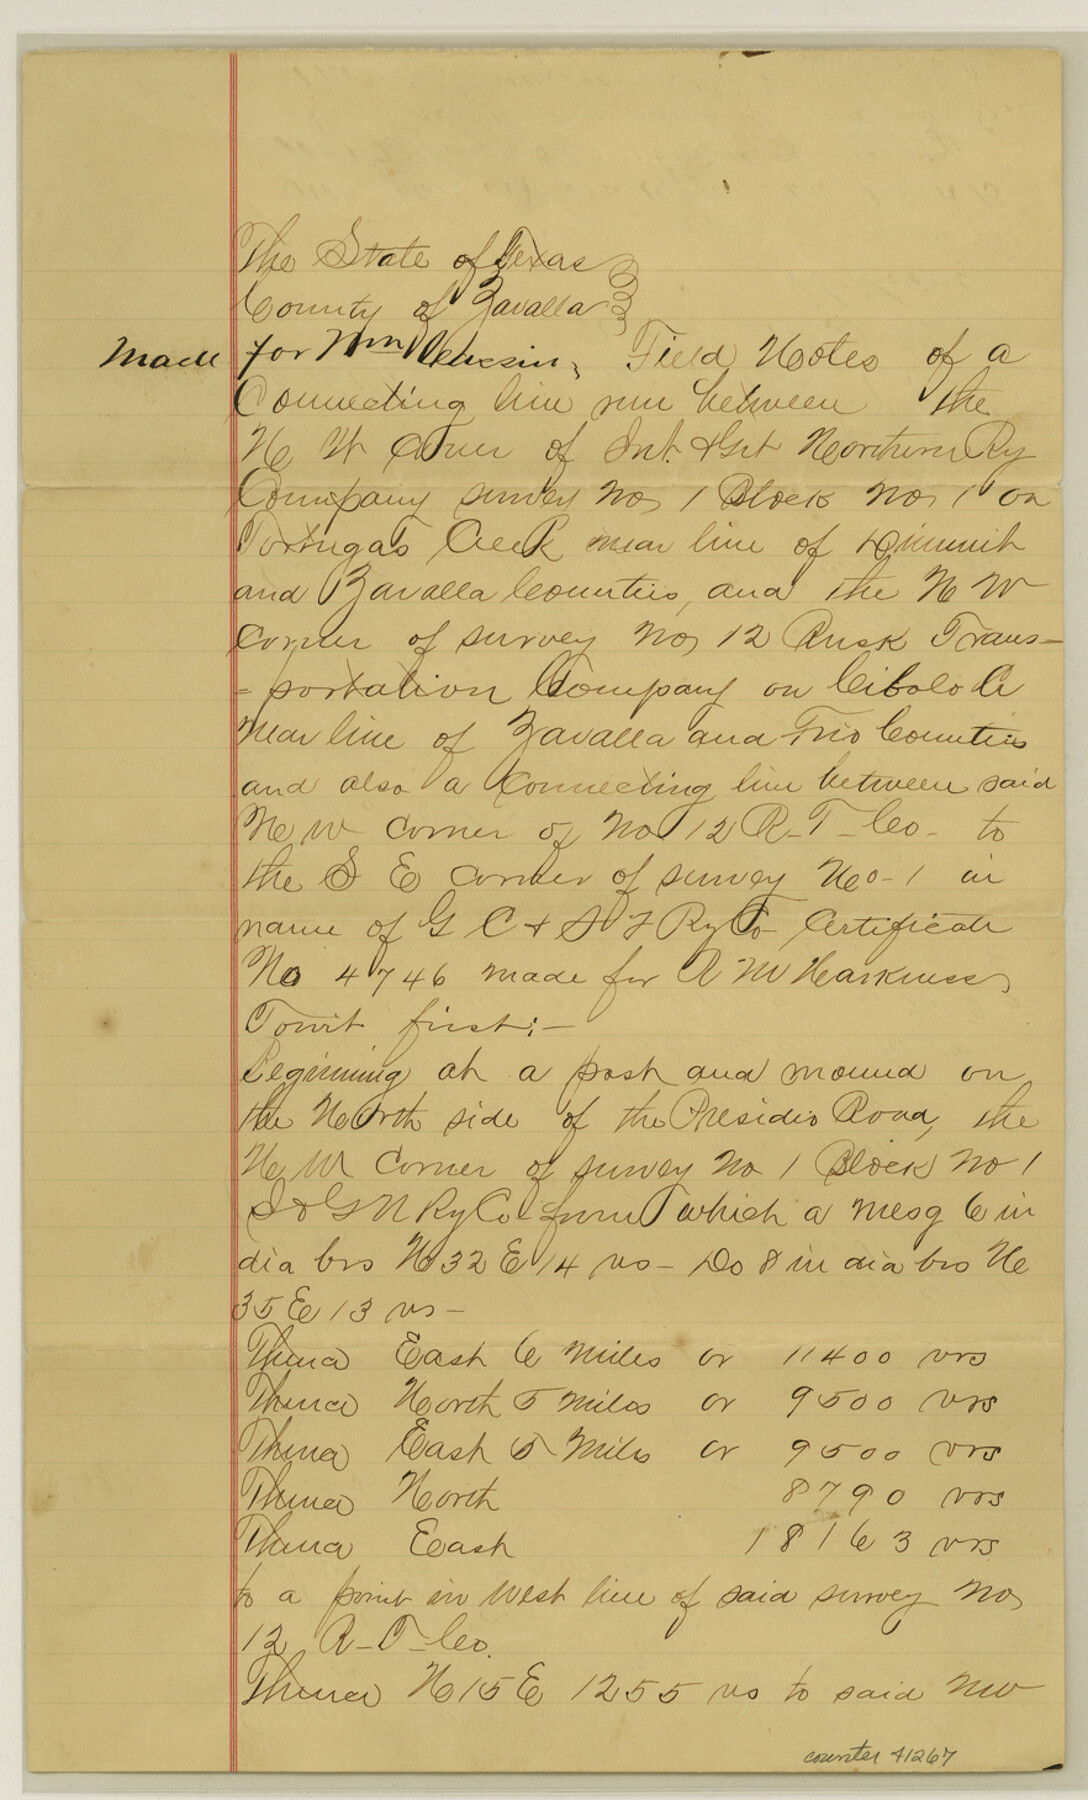 The State of Texas
County of Zavalla
Made for Wm Votaw; Field Notes of a
Connecting line run between the
N W Corner of Int. & Grt Northern Ry
Company survey No, 1 Block No, 1 on
Tortugas Creek near line of Dimmit
and Zavalla Counties, and the N W
Corner of survey No, 12 Rusk Trans-
=portation Company on Cibolo Cr
near line of Zavalla and Frio Counties
and also a Connecting line between said
N W Corner of No 12 R-T-Co- to
the S E Corner of survey No-1 in
name of G C & S F Ry Co Certificate
No 4746 made for A M Harkness,
Towit first:-
Beginning at a post and mound on
the North side of the Presidio Road, the
N W Corner of survey No 1 Block No 1
I & G N Ry Co- from which a mesq 6 in
dia brs N 32 E 14 vs- Do 8 in dia brs N
35 E 13 vs-
Thence East 6 Miles or 11400 vrs
Thence North 5 Miles or 9500 vrs
Thence East 5 Miles or 9500 vrs
Thence North 8790 vrs
Thence East 18163 vrs
to a point in west line of said survey No,
12 R-T-Co.
Thence N 15 E 1255 vs to said NW
counter 41267